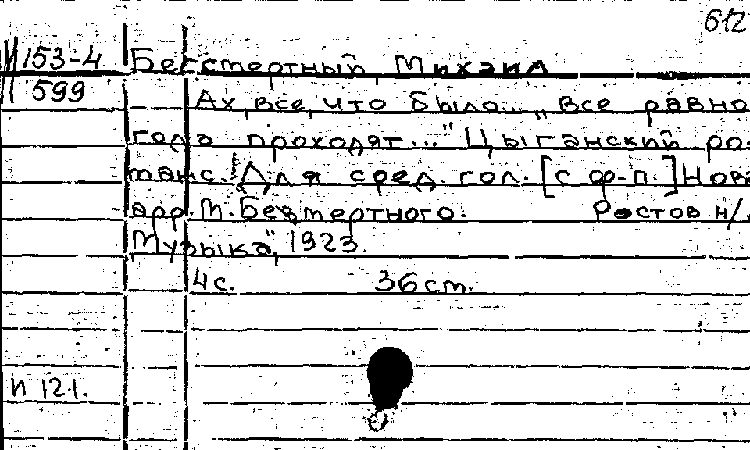 612
И 153-4 Бессмертный, Михаил
599 Ах, все, что было... „Все равно
года проходят..." Цыганский ро-
манс. Для сред. гол. [с ф-п.] Нов.
арр. М. Безмертного. Ростов н/
Музыка", 1923.
4 с. 36 см.
И 121.